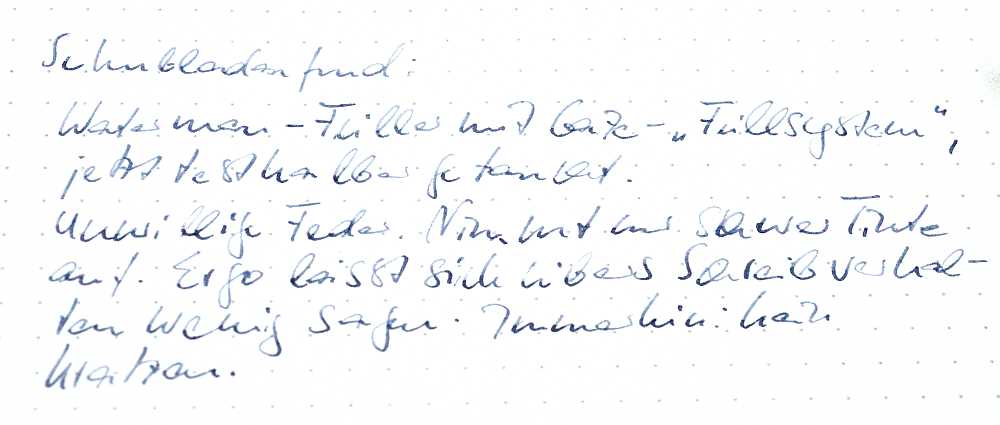 Schubladenfund:
Waterman-Füller mit Gaze-„Füllsystem",
jetzt testhalber getankt.
Unwillige Feder. Nimmt nur schwer Tinte
auf. Ergo lässt sich übers Schreibverhal-
ten wenig sagen. Immerhin: kein
Kratzen.